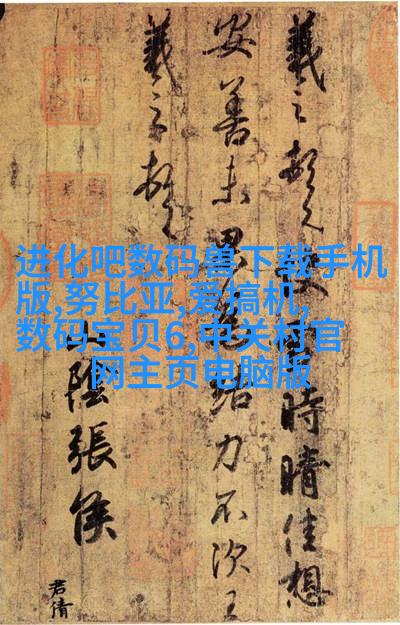 进化吧数码兽下载手机
版,努比亚,爱搞机,
数码宝贝6,中关村官
网主页电脑版
羲之頓首時晴佳想
安善未果結力不次王
羲之頓首
山陰張侯
君倩